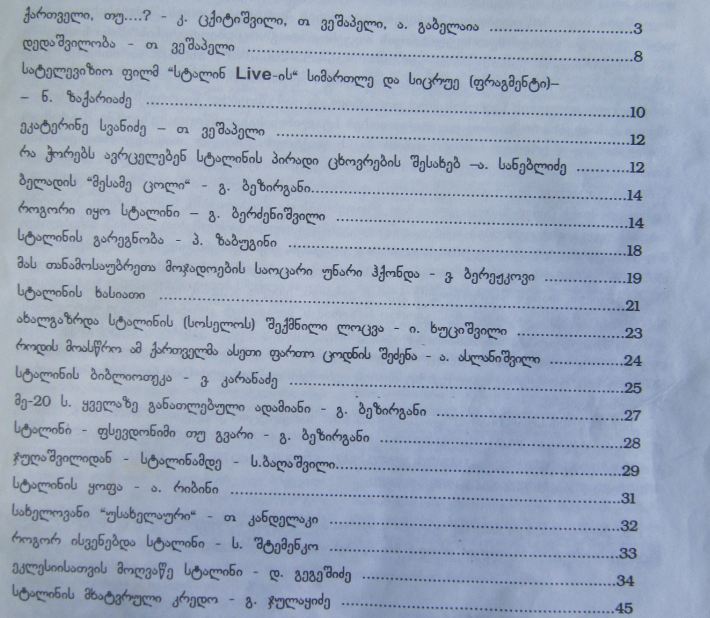 ქართველი, თუ....? - კ. ცქიტიშვილი, თ ვეშაპელი, ა. გაბელაია ................................3
დედაშვილობა - თ ვეშაპელი ................................8
სატელევიზიო ფილმ “სტალინ Live-ის“ სიმართლე და სიცრუე (ფრაგმენტი)–
– ნ. ზაქარიაძე ................................10
ეკატერინე სვანიძე – თ ვეშაპელი ................................12
რა ჭორებს ავრცელებენ სტალინის პირადი ცხოვრების შესახებ –ა. სანებლიძე ............12
ბელადის “მესამე ცოლი“ - გ. ბეზირგანი................................14
როგორი იყო სტალინი – გ. ბერძენიშვილი ................................14
სტალინის გარეგნობა - პ. ზაბუგინი ................................18
მას თანამოსაუბრეთა მოჯადოების საოცარი უნარი ჰქონდა - ვ. ბერეჟკოვი ................19
სტალინის ხასიათი ................................21
ახალგაზრდა სტალინის (სოსელოს) შექმნილი ლოცვა - ი. ხუციშვილი ................23
როდის მოასწრო ამ ქართველმა ასეთი ფართო ცოდნის შეძენა - ა. ასლანიშვილი ............24
სტალინის ბიბლიოთეკა - ვ. კარანაძე ................................25
მე-20 ს. ყველაზე განათლებული ადამიანი - გ. ბეზირგანი ................................27
სტალინი - ფსევდონიმი თუ გვარი - გ. ბეზირგანი ................................28
ჯუღაშვილიდან - სტალინამდე - ს.ბაღაშვილი................................29
სტალინის ყოფა - ა. რიბინი ................................31
სახელოვანი “უსახელაური“ - თ კანდელაკი ................................32
როგორ ისვენებდა სტალინი - ს. შტემენკო ................................33
ეკლესიისათვის მოღვაწე სტალინი - დ. გეგეშიძე ................................34
სტალინის მხატვრული კრედო - გ. ჯულაყიძე ................................45